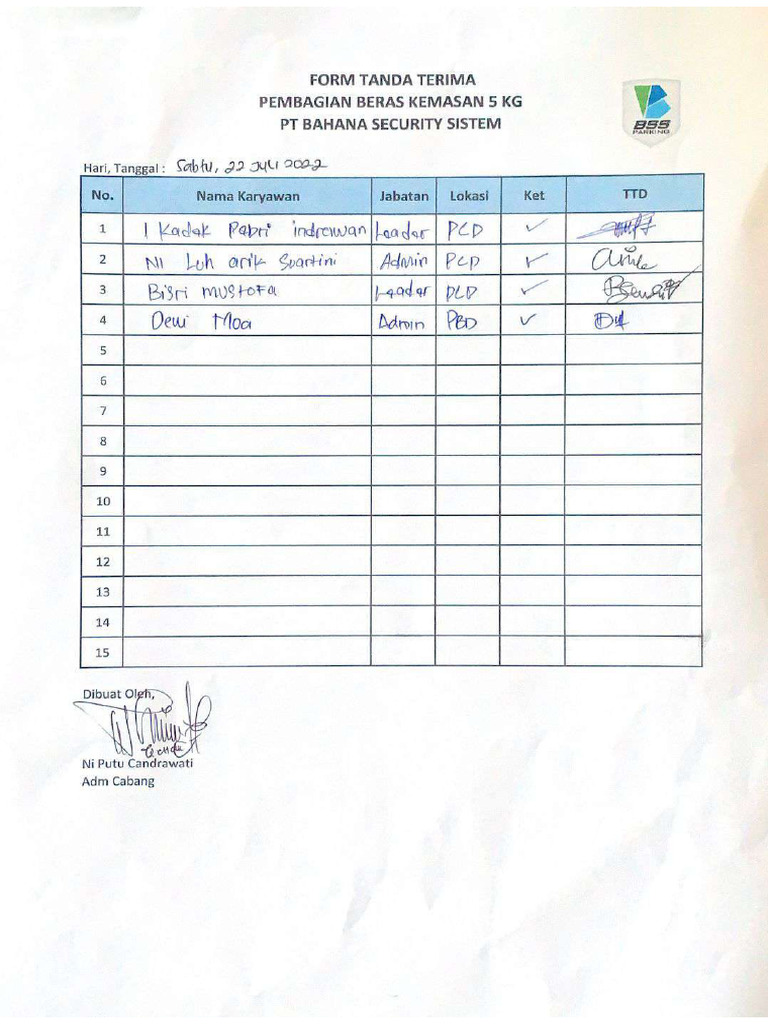 FORM TANDA TERIMA
PEMBAGIAN BERAS KEMASAN 5 KG
PT BAHANA SECURITY SISTEM
BSS
PARKING
Hari, Tanggal : Sabtu, 22 Juli 2022
No. Nama Karyawan Jabatan Lokasi Ket TTD
1 I Kadek Pebri indrawan Leader PCD ✓
2 NI Luh arik Suartini Admin PCD ✓
3 Bisri mustofa Leader DLD ✓
4 Dewi Moa Admin PBD ✓
5
6
7
8
9
10
11
12
13
14
15
Dibuat Oleh,
Ni Putu Candrawati
Adm Cabang